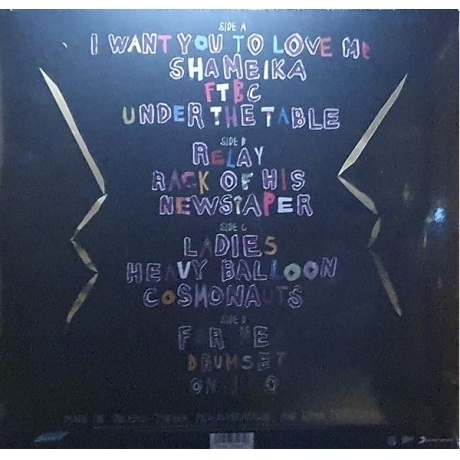 SIDE A
I WANT YOU TO LOVE ME
SHAMEIKA
FTBC
UNDER THE TABLE
SIDE B
RELAY
RACK OF HIS
NEWSPAPER
SIDE C
LADIES
HEAVY BALLOON
COSMONAUTS
SIDE D
FOR HER
DRUMSET
ON I GO